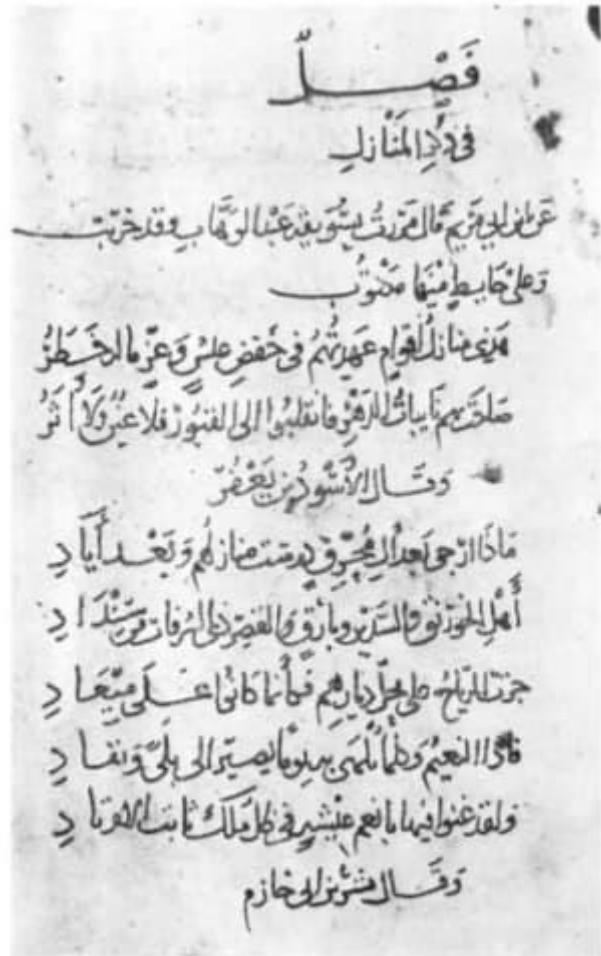 فَصْل
في ذِكْرِ المَنَازِلِ
عَن ابن ابي مَريم قال مَررتُ بسُوَيقة عَبد الوَهَّابِ وقد خربت
وَعَلى حَايطٍ مِنهَا مكتُوب
هَذِي منازِلُ اقوامٍ عَهِدتُهُمُ في خَفضِ عيشٍ وَعِزٍّ ما له خَطَرُ
صاحَت بهم نايباتُ الدَهرِ فانقلبُوا الى القبُور فلا عينٌ وَلا أثَرُ
وَقَال الأَسْوَد بن يَعْفُرَ
مَاذا ارجي بَعد آلِ مُحَرِّقٍ دَرسَت منازلُهُم وَبَعْد أيَادِ
أهْلِ الخورنق والسَديرِ وبارقٍ والقصرِ ذي الشرفات من سِنْدَادِ
جَرَت الرِيَاحُ على محلّ ديارهِم فكأنما كانوا عَلَى مِيْعَادِ
فاذا النعيمُ وكلمَا يُلهَى به يومًا يصيرُ الى بِلًى وَنفادِ
ولقد غنوا فيها بانعم عيْشةٍ في ظل مُلك ثابت الاوتادِ
وَقَال بشر بن ابي خازم